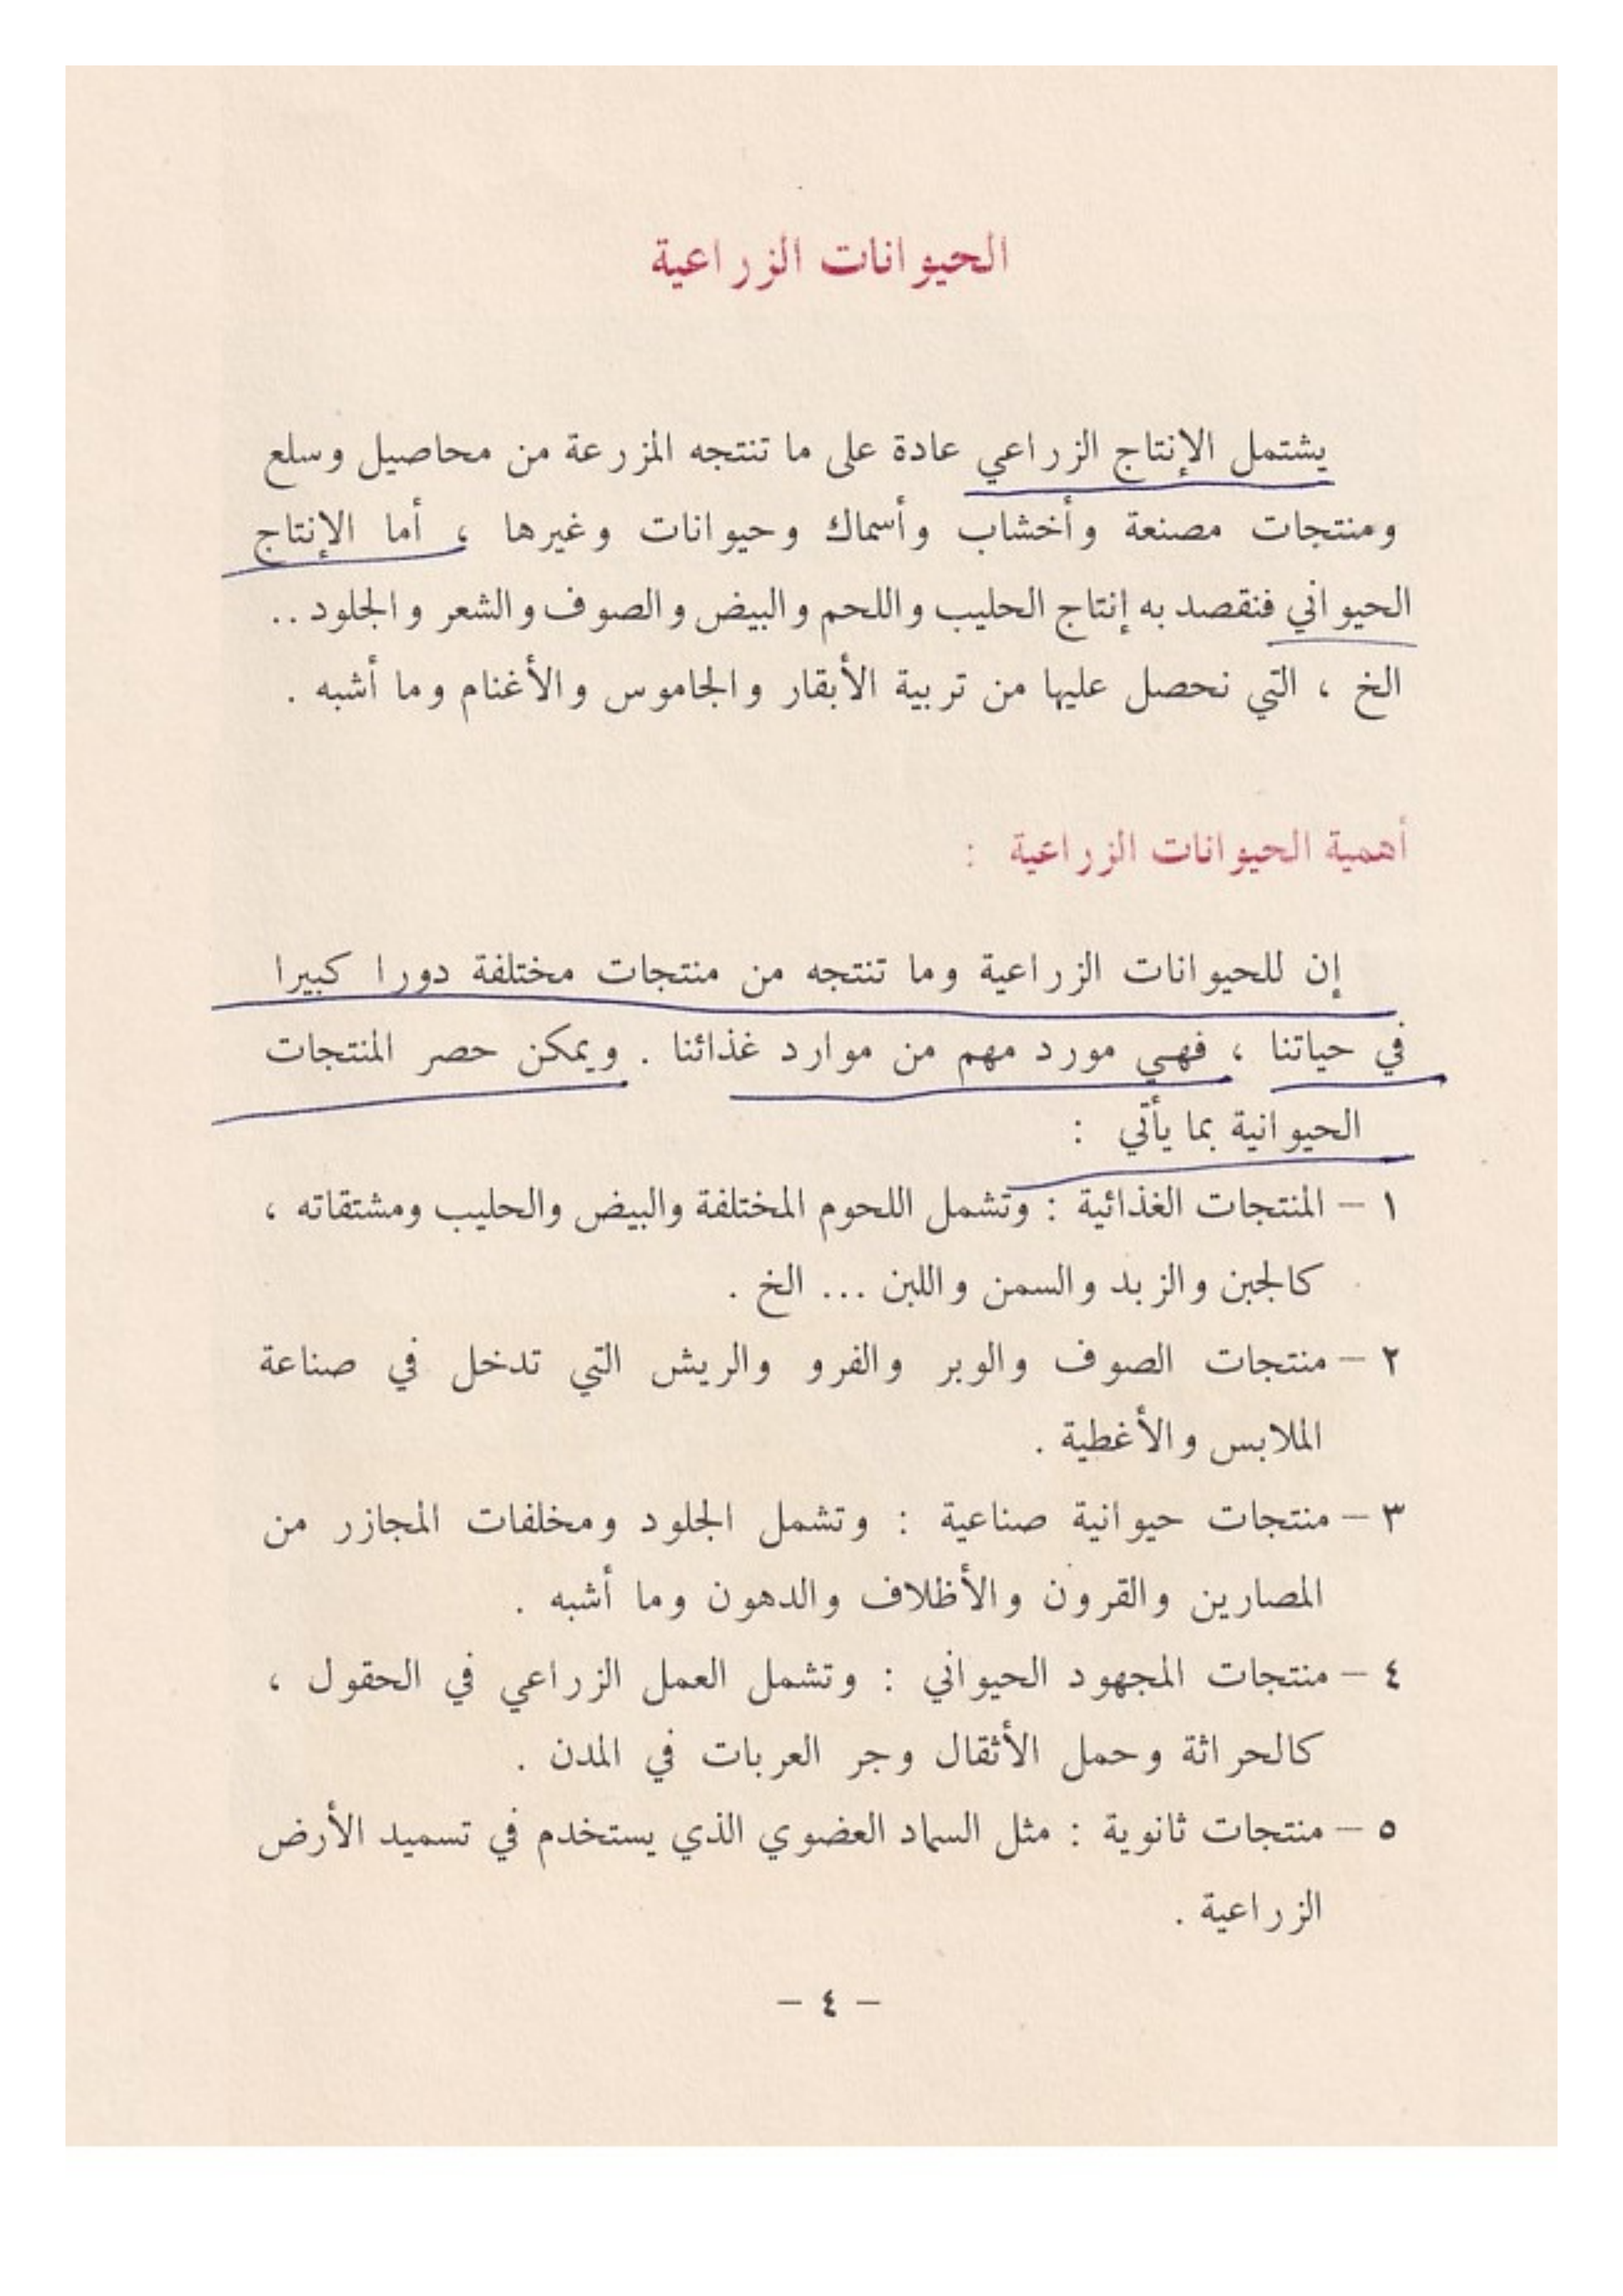 الحيوانات الزراعية
يشتمل الإنتاج الزراعي عادة على ما تنتجه المزرعة من محاصيل وسلع
ومنتجات مصنعة وأخشاب وأسماك وحيوانات وغيرها ، أما الإنتاج
الحيواني فنقصد به إنتاج الحليب واللحم والبيض والصوف والشعر والجلود ..
الخ ، التي نحصل عليها من تربية الأبقار والجاموس والأغنام وما أشبه .
أهمية الحيوانات الزراعية :
إن للحيوانات الزراعية وما تنتجه من منتجات مختلفة دورا كبيرا
في حياتنا ، فهي مورد مهم من موارد غذائنا . ويمكن حصر المنتجات
الحيوانية بما يأتي :
١ – المنتجات الغذائية : وتشمل اللحوم المختلفة والبيض والحليب ومشتقاته ،
كالجبن والزبد والسمن واللبن ... الخ .
٢ – منتجات الصوف والوبر والفرو والريش التي تدخل في صناعة
الملابس والأغطية .
٣ – منتجات حيوانية صناعية : وتشمل الجلود ومخلفات المجازر من
المصارين والقرون والأظلاف والدهون وما أشبه .
٤ – منتجات المجهود الحيواني : وتشمل العمل الزراعي في الحقول ،
كالحراثة وحمل الأثقال وجر العربات في المدن .
٥ – منتجات ثانوية : مثل السماد العضوي الذي يستخدم في تسميد الأرض
الزراعية .
– ٤ –